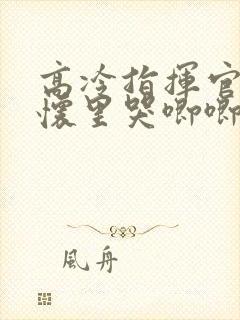 高冷指揮官
懷里哭唧唧
風舟